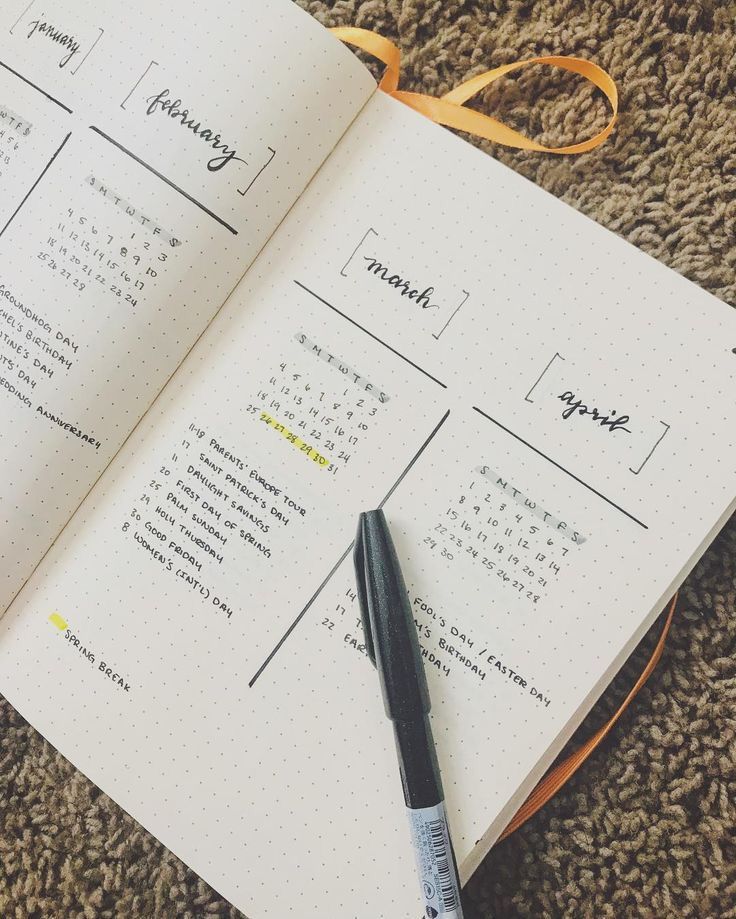 january
W T F S
february
S M T W T F S
1 2 3
4 5 6 7 8 9 10
11 12 13 14 15 16 17
18 19 20 21 22 23 24
25 26 27 28
GROUNDHOG DAY
BIRTHDAY
DAY
DAY
ANNIVERSARY
march
S M T W T F S
1 2 3
4 5 6 7 8 9 10
11 12 13 14 15 16 17
18 19 20 21 22 23 24
25 26 27 28 29 30 31
11-18 PARENTS' EUROPE TOUR
17 SAINT PATRICK'S DAY
11 DAYLIGHT SAVINGS
20 FIRST DAY OF SPRING
25 PALM SUNDAY
29 HOLY THURSDAY
30 GOOD FRIDAY
8 WOMEN'S (INT'L) DAY
SPRING BREAK
april
S M T W T F S
1 2 3 4 5 6 7
8 9 10 11 12 13 14
15 16 17 18 19 20 21
22 23 24 25 26 27 28
29 30
FOOL'S DAY / EASTER DAY
17 BIRTHDAY
22